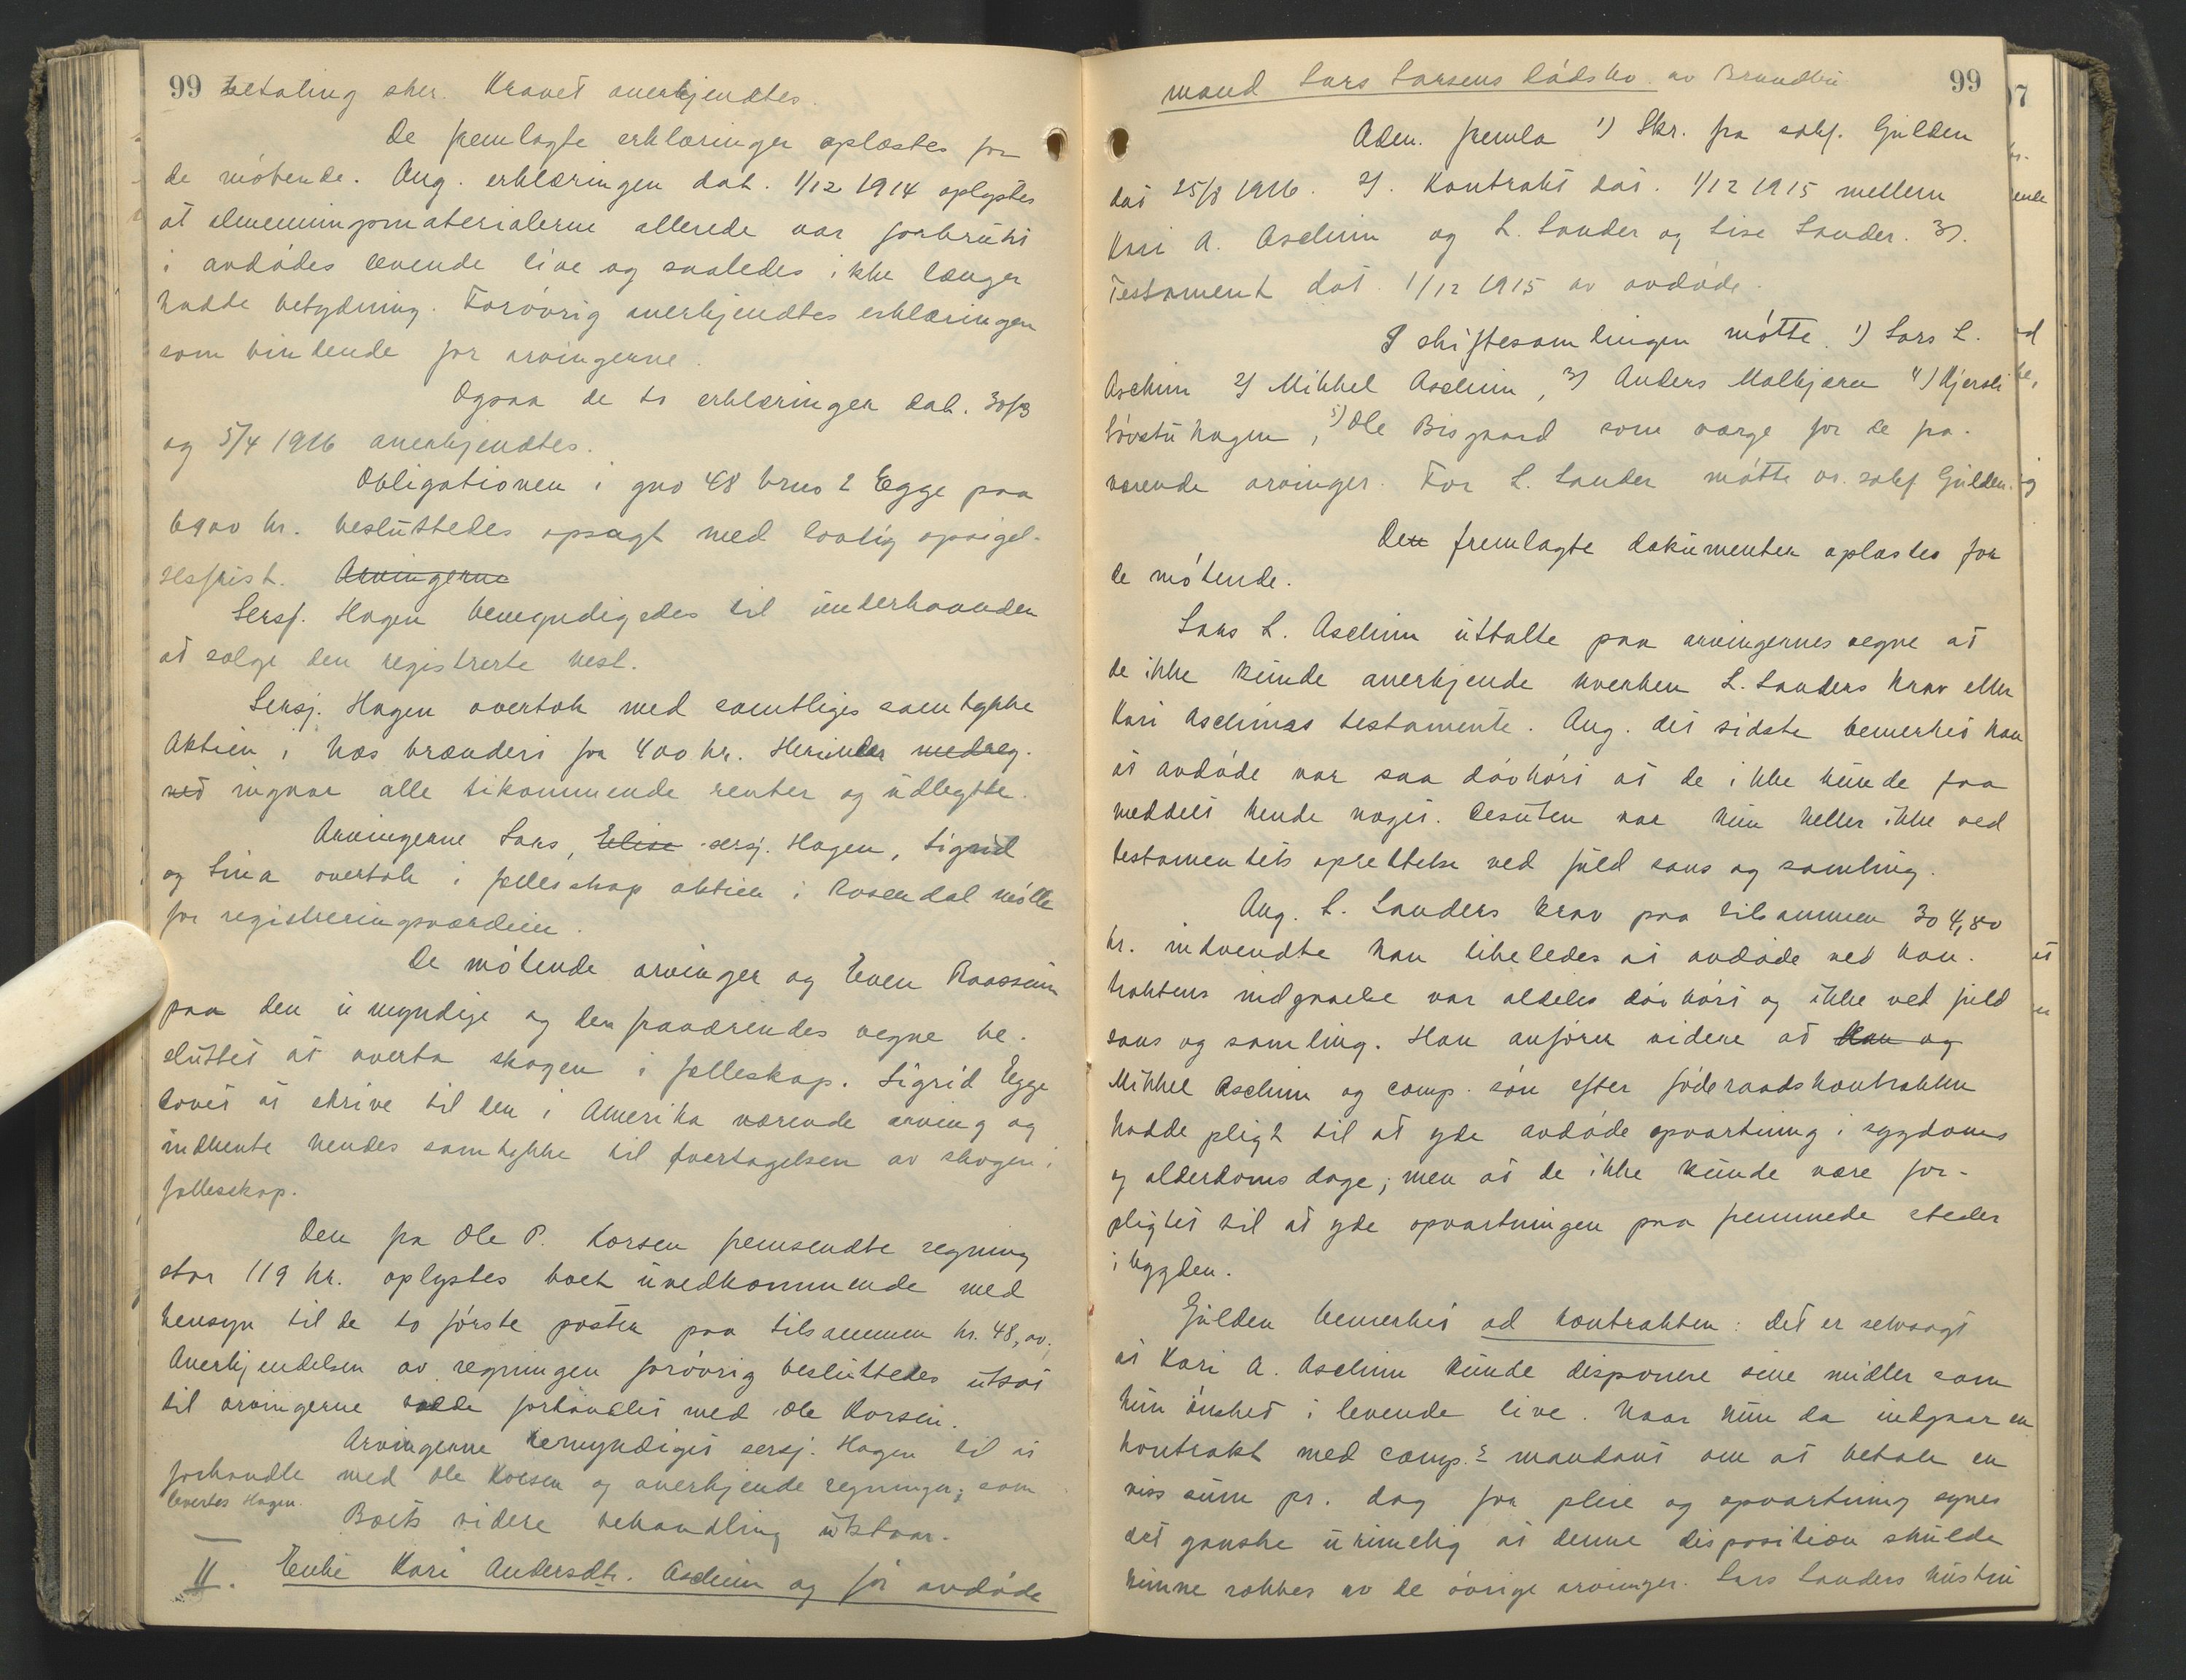 99 betaling sker. Kravet anerkjendtes.
De fremlagte erklæringer oplæstes for
de møtende. Ang. erklæringen dat. 1/12 1914 oplystes
at almenningsmaterialerne allerede var forbrukt
i avdødes levende live og saaledes ikke længer
hadde betydning. Forøvrig anerkjendtes erklæringen
som bindende for arvingerne.
Ogsaa de to erklæringer dat. 30/3
og 5/4 1916 anerkjendtes.
Obligationen i gno 48 brno 2 Egge paa
6900 kr. besluttedes opsagt med lovlig opsigel-
sesfrist. Arvingerne
Sersj. Hagen bemyndigedes til underhaanden
at sælge den registrerte hest.
Sersj. Hagen overtok med samtliges samtykke
aktien i Næs brænderi for 400 kr. Herunder medreg.
ved ingaar alle tilkommende renter og udbytte.
Arvingerne Lars, Elise sersj. Hagen, Sigrid
og Lina overtok i fælleskap aktien i Rosendal mølle
for registreringsværdien.
De møtende arvinger og Even Raassum
paa den umyndige og den fraværendes vegne be-
sluttet at overta skogen i fælleskap. Sigrid Egge
lovet at skrive til den i Amerika værende arving og
indhente hendes samtykke til overtagelsen av skogen i
fælleskap.
Den fra Ole P. Korsen fremsendte regning
stor 119 kr. oplystes boet uvedkommende med
hensyn til de to første poster paa tilsammen kr. 48,00.
Anerkjendelsen av regningen forøvrig besluttedes utsat
til arvingerne hadde forhandlet med Ole Korsen.
Arvingerne bemyndiget sersj. Hagen til at
forhandle med Ole Korsen og anerkjende regningen, som
levertes Hagen.
Boets videre behandling utstaar.
II. Enke Kari Andersdtr. Aschim og før avdøde
mand Lars Larsens dødsbo av Brandbu 99
Adm. fremla 1) Skr. fra sakf. Gulden
dat 25/8 1916. 2). Kontrakt dat. 1/12 1915 mellem
Kari A. Aschim og L. Sander og Lise Sander. 3).
Testament dat. 1/12 1915 av avdøde.
I skiftesamlingen møtte. 1) Lars L.
Aschim 2) Mikkel Aschim, 3) Anders Molkjæren 4) Kjersti
Løvstuhagen, 5) Ole Bisgaard som værge for de fra-
værende arvinger. For L. Sander møtte or. sakf Gulden.
Den fremlagte dokumenter oplæstes for
de møtende.
Lars L. Aschim uttalte paa arvingernes vegne at
de ikke kunde anerkjende hverken L. Sanders krav eller
Kari Aschims testamente. Ang. det sidste bemerket han
at avdøde var saa døvhørt at de ikke kunde faa
meddelt hende noget. Desuten var hun heller ikke ved
testamentets oprettelse ved fuld sans og samling.
Ang. L. Sanders krav paa tilsammen 304,80
kr. indvendte han likeledes at avdøde ved kon-
traktens indgaaelse var aldeles døvhørt og ikke ved fuld
sans og samling. Han anfører videre at han og
Mikkel Aschim og comp. søn efter føderaadskontrakten
hadde pligt til at yde avdøde opvartning i sygdoms
og alderdoms dage; men at de ikke kunde være for-
pligtet til at yde opvartningen paa fremmede steder
i bygden.
Gulden bemerket ad kontrakten: det er selvsagt
at Kari A. Aschim kunde disponere sine midler som
hun ønsket i levende live. Naar hun da indgaar en
kontrakt med comp.s mandant om at betale en
viss sum pr. dag for pleie og opvartning synes
det ganske urimelig at denne disposition skulde
kunne rokkes av de øvrige arvinger. Lars Sanders hustru